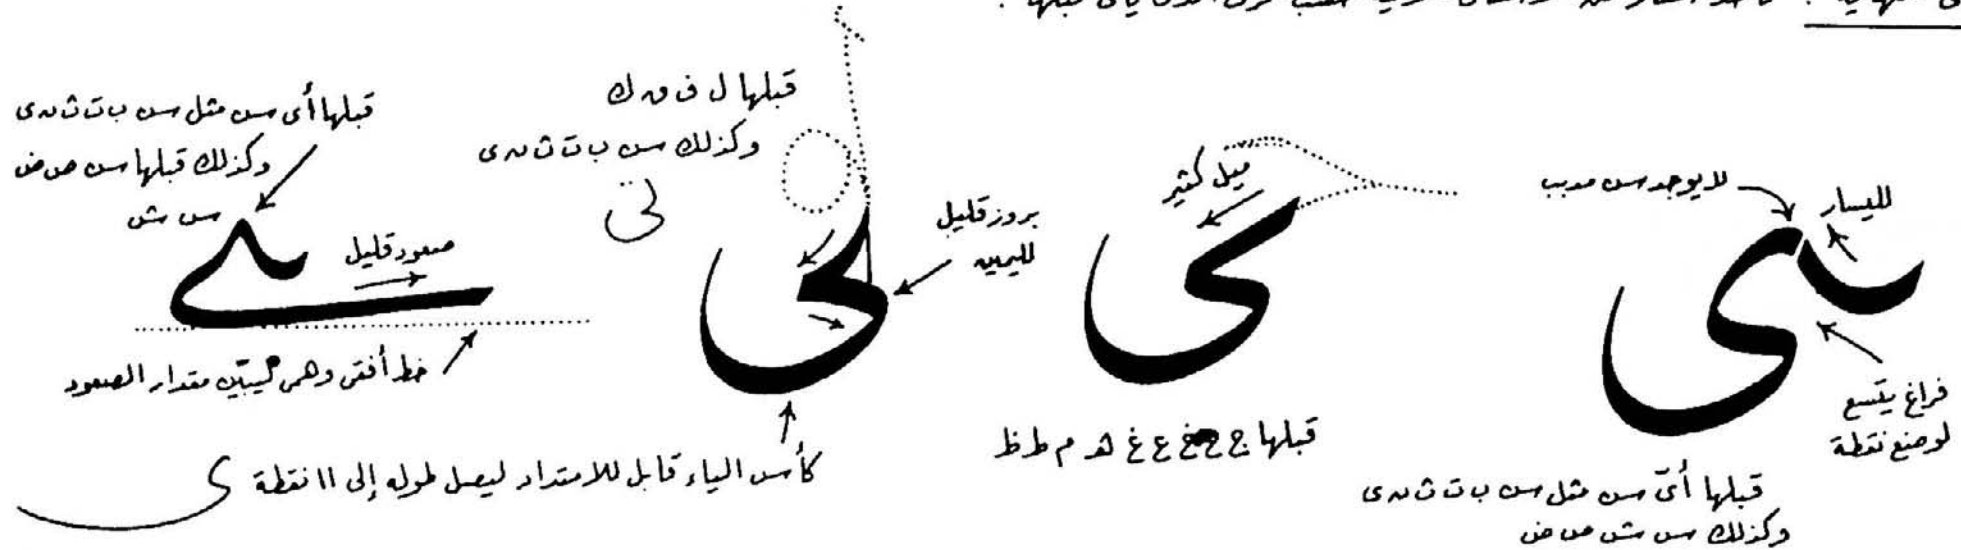 لليسار
لا يوجد سن مدبب
فراغ يتسع
لوضع نقطة
قبلها أى سن مثل سن ب ت ث ن ى
وكذلك س ش ص ض
ميل كثير
قبلها ج ح خ ع غ ه م ط ظ
قبلها ل ف ق ك
وكذلك سن ب ت ث ن ى
بروز قليل
لليمين
كأس الياء قابل للامتداد ليصل طوله إلى ١١ نقطة
قبلها أى سن مثل سن ب ت ث ن ى
وكذلك قبلها سن ص ض
س ش
صعود قليل
خط أفقى وهمى ليبين مقدار الصعود